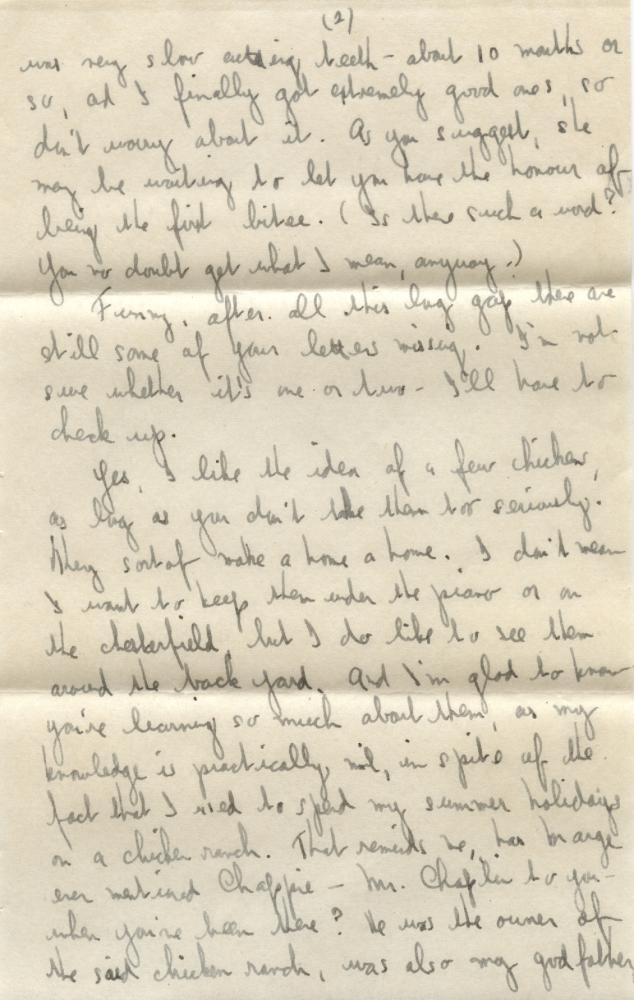 (2)
was very slow cutting teeth - about 10 months or
so, ad I finally got extremely good ones, so
don't worry about it. As you suggest, she
may be waiting to let you have the honour of
being the first bitee. (Is there such a word?
You no doubt get what I mean, anyway.)
Funny, after all this long gap there are
still some of your letters missing. I'm not
sure whether it's one or two - I'll have to
check up.
Yes, I like the idea of a few chickens,
as long as you don't take them too seriously.
They sort of make a home a home. I don't mean
I want to keep them under the piano or on
the chesterfield, but I do like to see them
around the back yard. And I'm glad to know
you're learning so much about them, as my
knowledge is practically nil, in spite of the
fact that I used to spend my summer holidays
on a chicken ranch. That reminds me, has Marge
ever mentioned Chappie - Mr. Chaplin to you -
when you've been there? He was the owner of
the said chicken ranch, was also my godfather